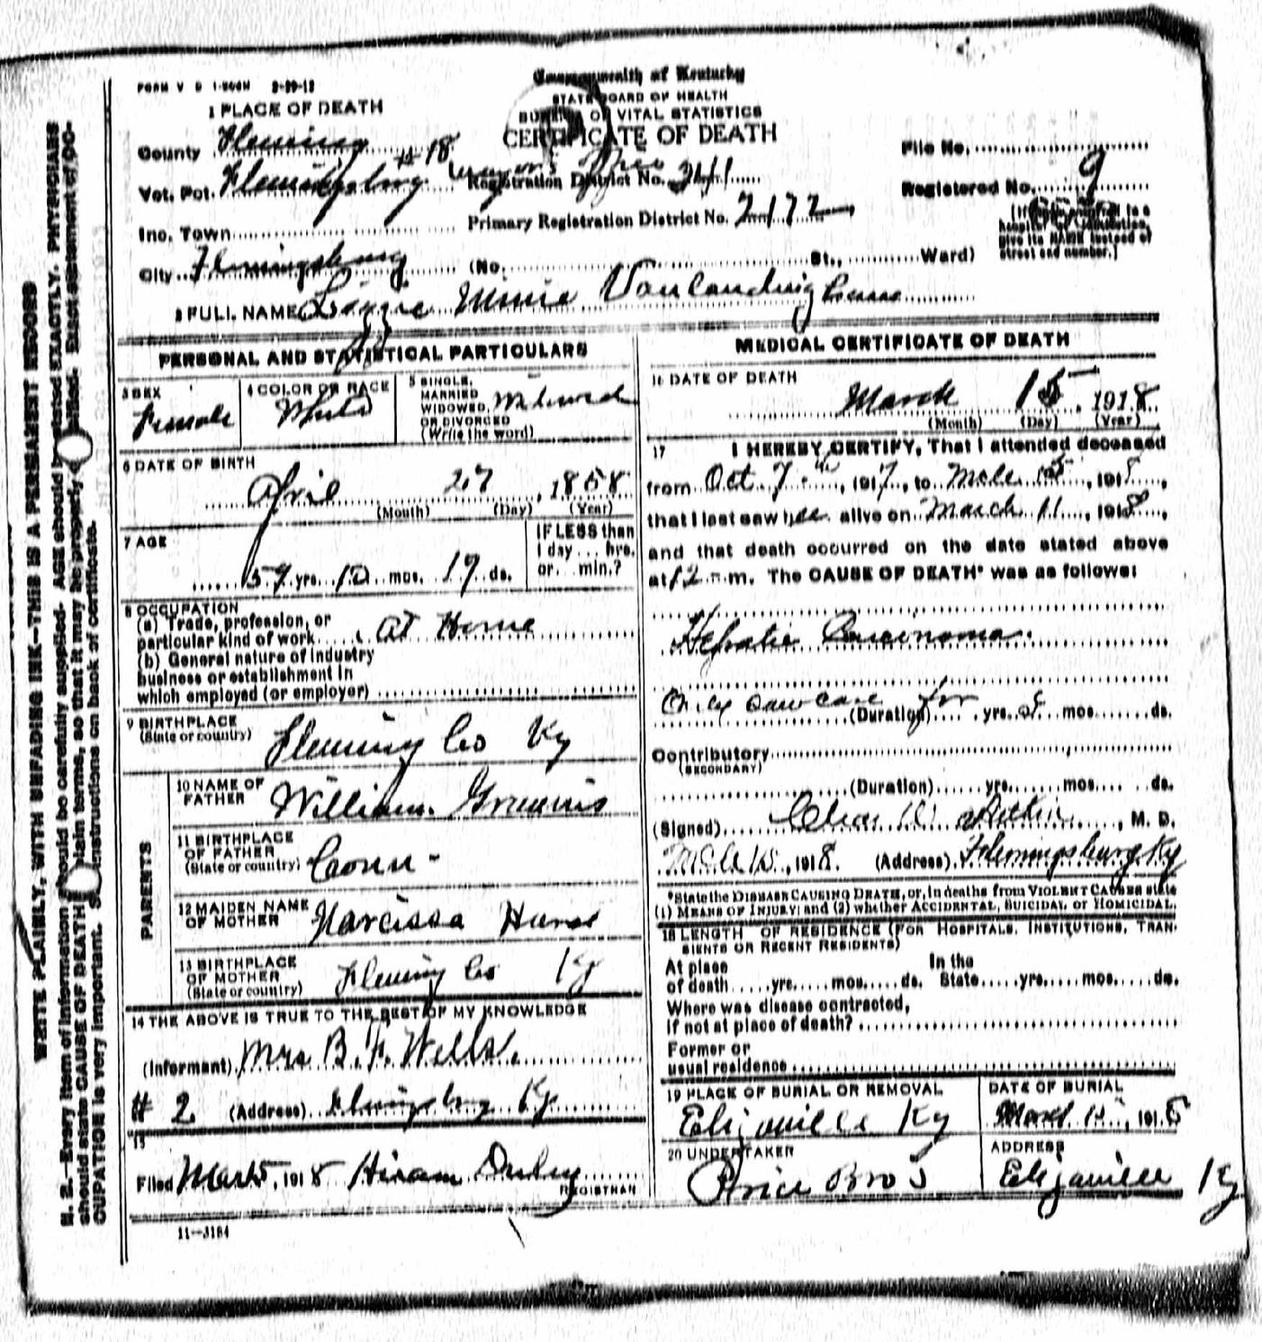 FORM V S 1-500M 2-20-12
Commonwealth of Kentucky
STATE BOARD OF HEALTH
BUREAU OF VITAL STATISTICS
CERTIFICATE OF DEATH
1 PLACE OF DEATH
County Fleming
File No.
Vot. Pct. Flemingsburg #18 Registration District No. 341
Registered No. 9
Inc. Town Primary Registration District No. 2172
[If death occurred in a hospital or institution, give its NAME instead of street and number.]
City Flemingsburg (No. St., Ward)
2 FULL NAME Lizzie Minie Vanlandingham
PERSONAL AND STATISTICAL PARTICULARS
3 SEX
Female
4 COLOR OR RACE
White
5 SINGLE, MARRIED WIDOWED, OR DIVORCED (Write the word)
6 DATE OF BIRTH
April 27, 1858
(Month) (Day) (Year)
7 AGE
59 yrs. 10 mos. 19 ds.
IF LESS than 1 day... hrs. or... min.?
8 OCCUPATION
(a) Trade, profession, or
particular kind of work At Home
(b) General nature of industry
business or establishment in
which employed (or employer)
9 BIRTHPLACE
(State or country) Fleming Co Ky
PARENTS
10 NAME OF FATHER William
11 BIRTHPLACE OF FATHER (State or country) Conn-
12 MAIDEN NAME OF MOTHER Narcissa
13 BIRTHPLACE OF MOTHER (State or country) Fleming Co Ky
14 THE ABOVE IS TRUE TO THE BEST OF MY KNOWLEDGE
(Informant) Mrs B. F. Wells.
# 2 (Address) Flemingsburg Ky
15
Filed Mar 15, 1918 Hiram
REGISTRAR
11-3184
MEDICAL CERTIFICATE OF DEATH
16 DATE OF DEATH
March 15, 1918
(Month) (Day) (Year)
17 I HEREBY CERTIFY, That I attended deceased
from Oct 7th, 1917, to Mch 15, 1918,
that I last saw her alive on March 11, 1918,
and that death occurred on the date stated above
at 12 m. The CAUSE OF DEATH* was as follows:
Hepatic Carcinoma.
Only saw case for
(Duration) yrs. 5 mos. ds.
Contributory
(SECONDARY)
(Duration) yrs. mos. ds.
(Signed) Chas. Aitkin, M. D.
Mch 15, 1918. (Address) Flemingsburg Ky
*State the DISEASE CAUSING DEATH, or, in deaths from VIOLENT CAUSES state
(1) MEANS OF INJURY; and (2) whether ACCIDENTAL, SUICIDAL or HOMICIDAL.
18 LENGTH OF RESIDENCE (FOR HOSPITALS, INSTITUTIONS, TRANSIENTS OR RECENT RESIDENTS)
At place of death yrs. mos. ds. In the State yrs. mos. ds.
Where was disease contracted,
if not at place of death?
Former or
usual residence
19 PLACE OF BURIAL OR REMOVAL
Elizaville Ky
DATE OF BURIAL
March 15, 1918
20 UNDERTAKER
Price Bros
ADDRESS
Elizaville Ky
WRITE PLAINLY, WITH UNFADING INK—THIS IS A PERMANENT RECORD
N. B.—Every item of information should be carefully supplied. AGE should be stated EXACTLY. PHYSICIANS
should state CAUSE OF DEATH in plain terms, so that it may be properly classified. Exact statement of OC-
CUPATION is very important. See instructions on back of certificate.